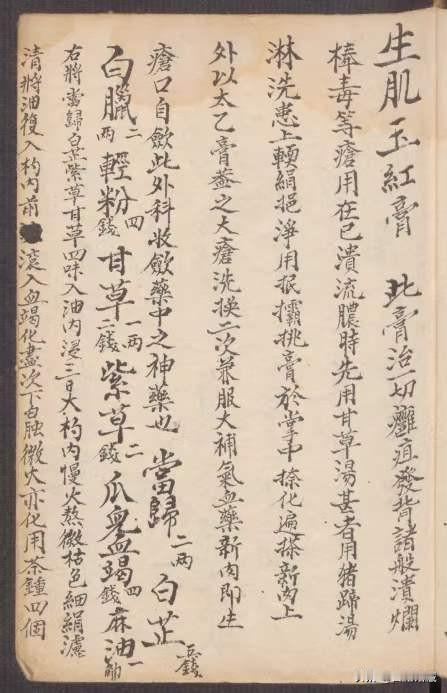 生肌玉紅膏　此膏治一切癰疽發背諸般潰爛
棒毒等瘡用在已潰流膿時先用甘草湯甚者用猪蹄湯
淋洗患上輭絹挹淨用抿挑膏於掌中捺化遍搽新肉上
外以太乙膏蓋之大瘡洗換二次兼服大補氣血藥新肉即生
瘡口自歛此外科收歛藥中之神藥也　當歸二兩　白芷五錢
白臘二兩輕粉四錢甘草一兩二錢紫草二錢瓜兒血竭四錢麻油一觔
右將當歸白芷紫草甘草四味入油內浸三日大杓內慢火熬微枯色細絹濾
清將油復入杓內前滾入血竭化盡次下白臘微火亦化用茶鍾四個